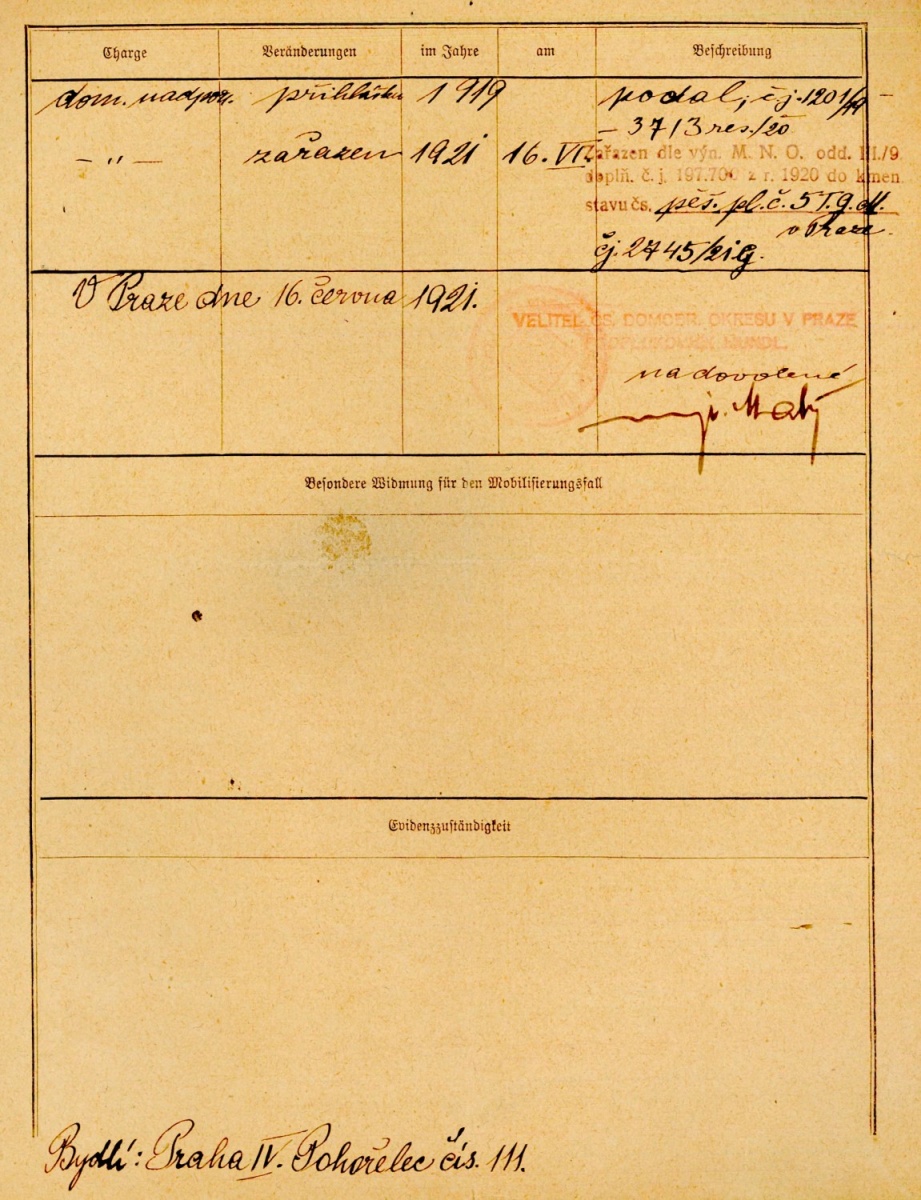 Charge Veränderungen im Jahre am Beschreibung
dom. nadpor. přihlášku 1919 podal, čj. 1201/19 —
— 3713 res./20
— „ — zařazen 1921 16. VI. Zařazen dle výn. M. N. O. odd. III./9
doplň. č. j. 197.700 z r. 1920 do kmen
stavu čs. pěš. pl. č. 5 T. G. M.
v Praze.
čj. 2745/21 g.
V Praze dne 16. června 1921.
VELITEL ČS. DOMOBR. OKRESU V PRAZE
na dovolené
Matý
Besondere Widmung für den Mobilisierungsfall
Evidenzzuständigkeit
Bydlí: Praha IV. Pohořelec čís. 111.